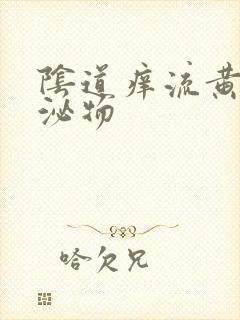 陰道痒流黄
泌物
哈欠兄